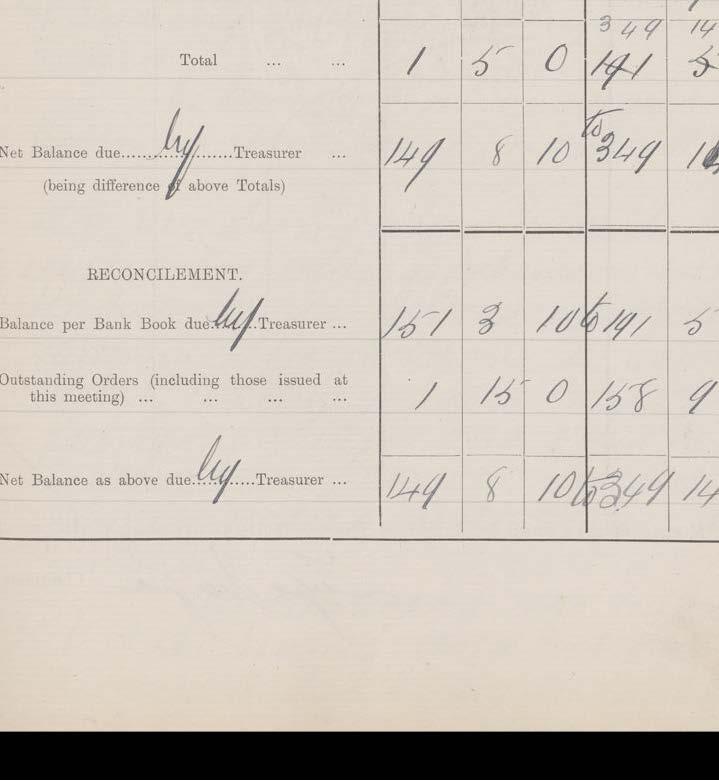 349 14
Total ... ... 1 5 0 191 5
Net Balance due by Treasurer ... 149 8 10 to 349 14
(being difference of above Totals)
RECONCILEMENT.
Balance per Bank Book due by Treasurer ... 151 3 10 to 191 5
Outstanding Orders (including those issued at
this meeting) ... ... ... ... 1 15 0 158 9
Net Balance as above due by Treasurer ... 149 8 10 to 349 14